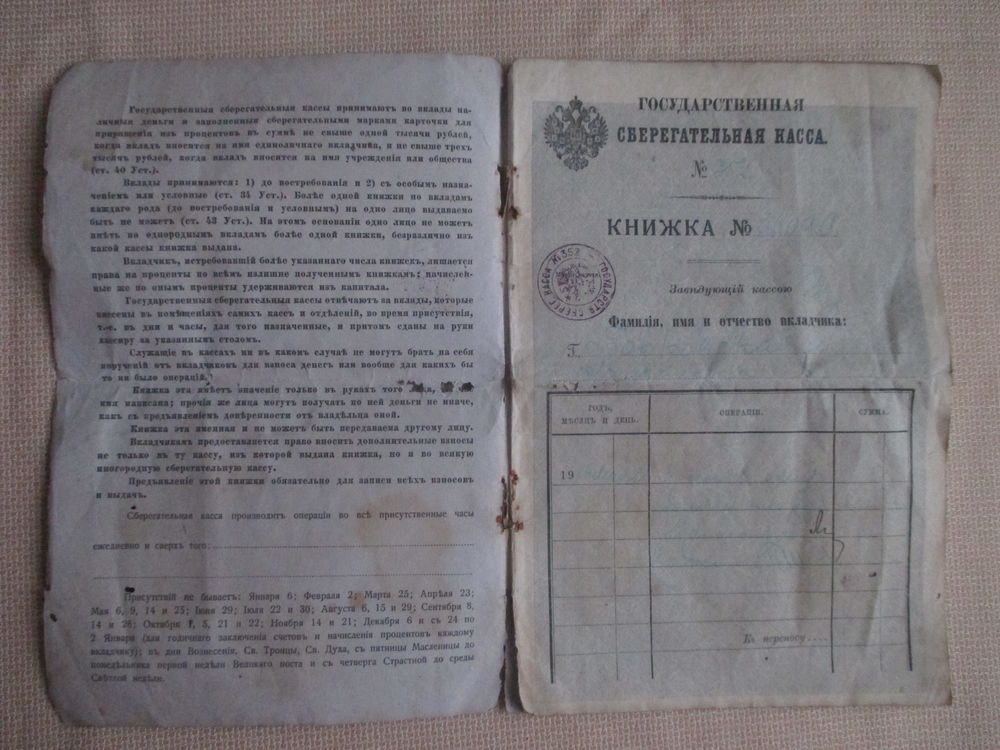 Государственныя сберегательныя кассы принимаютъ во вклады на-
личныя деньги и заполненныя сберегательными марками карточки для
приращенія изъ процентовъ въ суммѣ не свыше одной тысячи рублей,
когда вкладъ вносится на имя единоличнаго вкладчика, и не свыше трехъ
тысячъ рублей, когда вкладъ вносится на имя учрежденія или общества
(ст. 40 Уст.).
Вклады принимаются: 1) до востребованія и 2) съ особымъ назна-
ченіемъ или условные (ст. 34 Уст.). Болѣе одной книжки по вкладамъ
каждаго рода (до востребованія и условнымъ) на одно лицо выдаваемо
быть не можетъ (ст. 43 Уст.). На этомъ основаніи одно лицо не можетъ
имѣть по однороднымъ вкладамъ болѣе одной книжки, безразлично изъ
какой кассы книжка выдана.
Вкладчикъ, истребовавшій болѣе указаннаго числа книжекъ, лишается
права на проценты по всѣмъ излишне полученнымъ книжкамъ; начислен-
ные же по онымъ проценты удерживаются изъ капитала.
Государственныя сберегательныя кассы отвѣчаютъ за вклады, которые
внесены въ помѣщеніяхъ самихъ кассъ и отдѣленій, во время присутствія,
т.-е. въ дни и часы, для того назначенные, и притомъ сданы на руки
кассиру за указаннымъ столомъ.
Служащіе въ кассахъ ни въ какомъ случаѣ не могутъ брать на себя
порученій отъ вкладчиковъ для взноса денегъ или вообще для какихъ бы
то ни было операцій.
Книжка эта имѣетъ значеніе только въ рукахъ того
кия написана; прочія же лица могутъ получать по ней деньги не иначе,
какъ съ предъявленіемъ довѣренности отъ владѣльца оной.
Книжка эта именная и не можетъ быть передаваема другому лицу.
Вкладчикамъ предоставляется право вносить дополнительные взносы
не только въ ту кассу, изъ которой выдана книжка, но и во всякую
иногороднюю сберегательную кассу.
Предъявленіе этой книжки обязательно для записи всѣхъ взносовъ
и выдачъ.
Сберегательная касса производитъ операціи во всѣ присутственные часы
ежедневно и сверхъ того:
Присутствій не бываетъ: Января 6; Февраля 2; Марта 25; Апрѣля 23;
Мая 6, 9, 14 и 25; Іюня 29; Іюля 22 и 30; Августа 6, 15 и 29; Сентября 8,
14 и 26; Октября 1, 5, 21 и 22; Ноября 14 и 21; Декабря 6 и съ 24 по
2 Января (для годичнаго заключенія счетовъ и начисленія процентовъ каждому
вкладчику); въ дни Вознесенія, Св. Троицы, Св. Духа, съ пятницы Масленицы до
понедѣльника первой недѣли Великаго поста и съ четверга Страстной до среды
Свѣтлой недѣли.
ГОСУДАРСТВЕННАЯ
СБЕРЕГАТЕЛЬНАЯ КАССА.
№
КНИЖКА №
ГОСУДАРСТВ. СБЕРЕГ. КАССА № 352
Завѣдующій кассою
Фамилія, имя и отчество вкладчика:
Г.
ГОДЪ, МѢСЯЦЪ И ДЕНЬ.
ОПЕРАЦІИ.
СУММА.
19
Къ переносу....